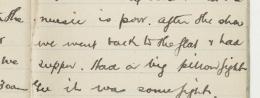 the music is poor. After the show
we went back to the flat & had
we supper. Had a big pillow fight
3 am Gee it was some fight.